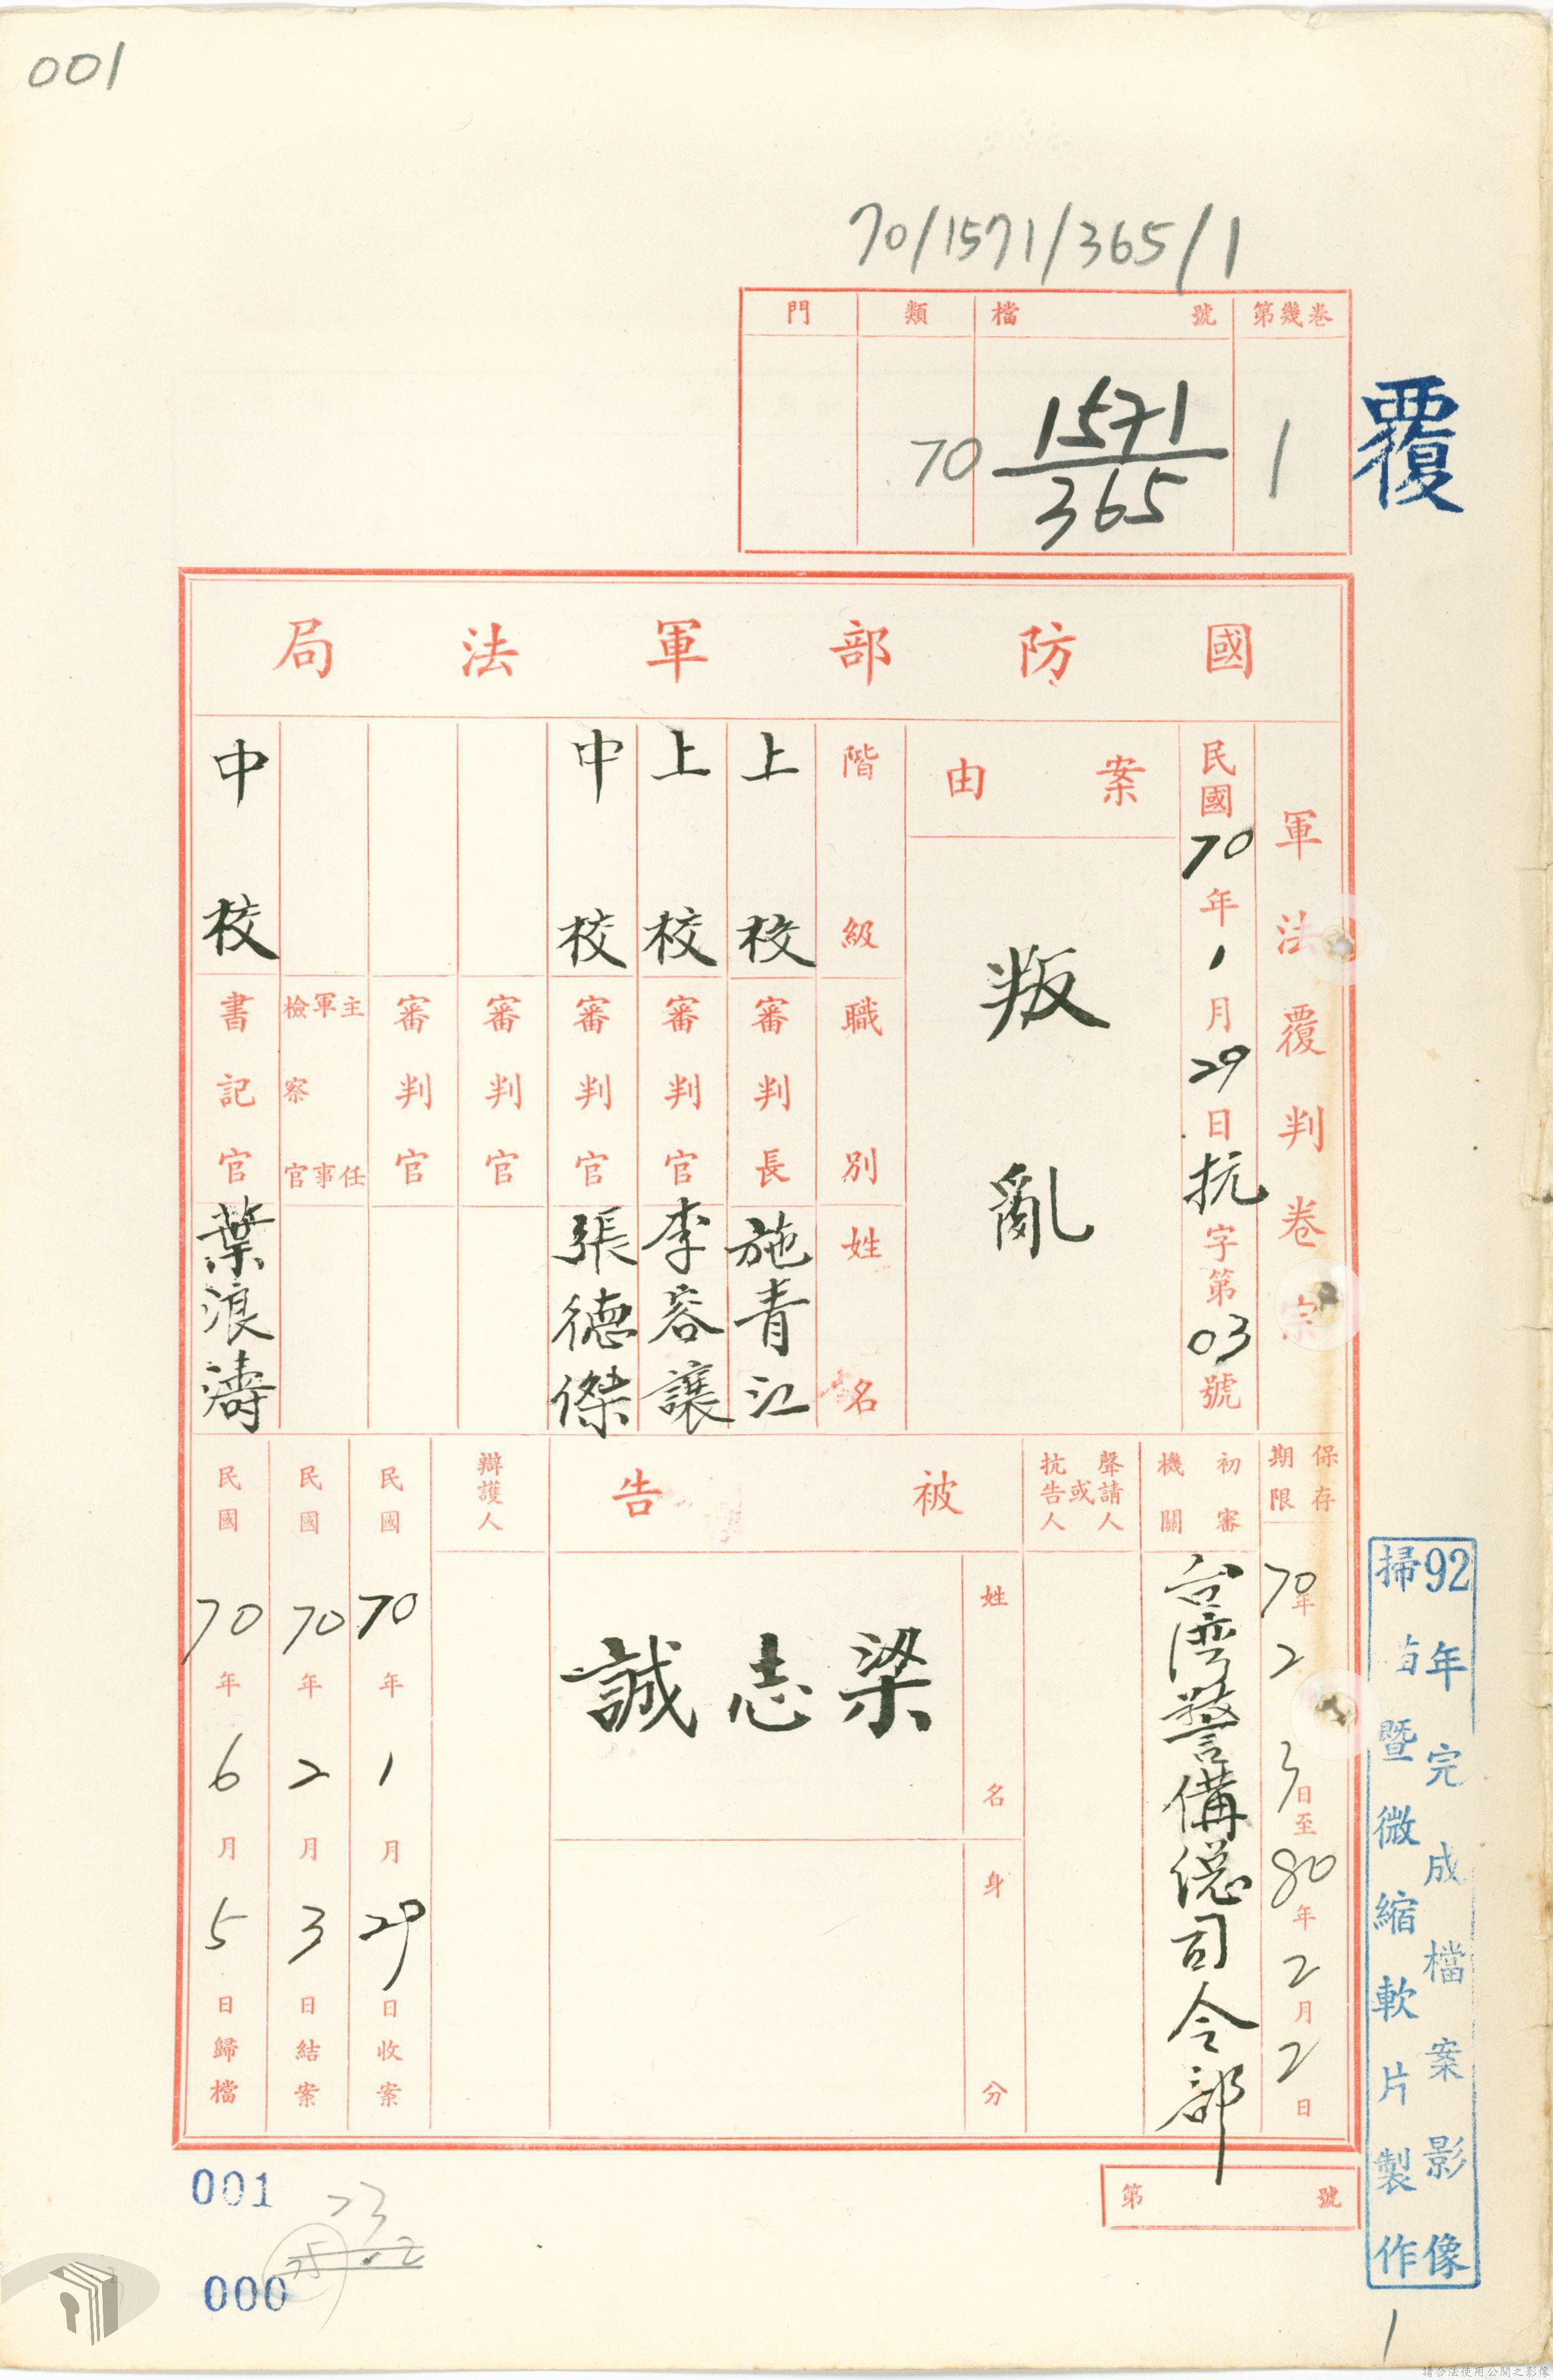 001
70/1571/365/1
第幾卷
1
檔號
1571
365
類
70
門
覆
國防部軍法局
軍法覆判卷宗
民國70年1月29日抗字第03號
案由
叛亂
階級 職別 姓名
上校 審判長 施青江
上校 審判官 李容讓
中校 審判官 張德傑
審判官
審判官
主任軍事檢察官
中校 書記官 葉浪濤
保存期限
70年2 3日至80年2月2日
初審機關
台湾警備總司令部
聲請人或抗告人
被告
姓名
梁志誠
身分
辯護人
民國70年1月29日收案
民國70年2月3日結案
民國70年6月5日歸檔
第 號
92年完成檔案影像
掃描暨微縮軟片製作
001
000
1
請合法使用公開之影像